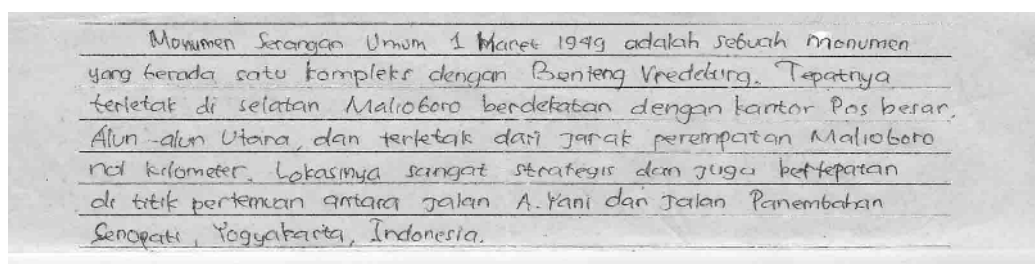 Monumen Serangan Umum 1 Maret 1949 adalah sebuah monumen
yang berada satu kompleks dengan Benteng Vredeburg. Tepatnya
terletak di selatan Malioboro berdekatan dengan kantor Pos besar,
Alun-alun Utara, dan terletak dari Jarak perempatan Malioboro
nol kilometer. Lokasinya sangat strategis dan Juga bertepatan
di titik pertemuan antara Jalan A. Yani dan Jalan Panembahan
Senopati, Yogyakarta, Indonesia.